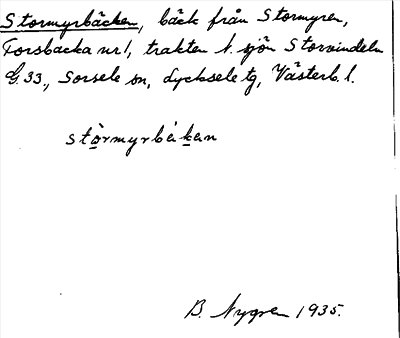 Stormyrbäcken, bäck från Stormyren,
Forsbacka nr 1, trakten N. sjön Storvindeln
G. 33., Sorsele sn, Lycksele tg, Västerb. l.
stòrmyrbäkan
B. Nygren 1935.